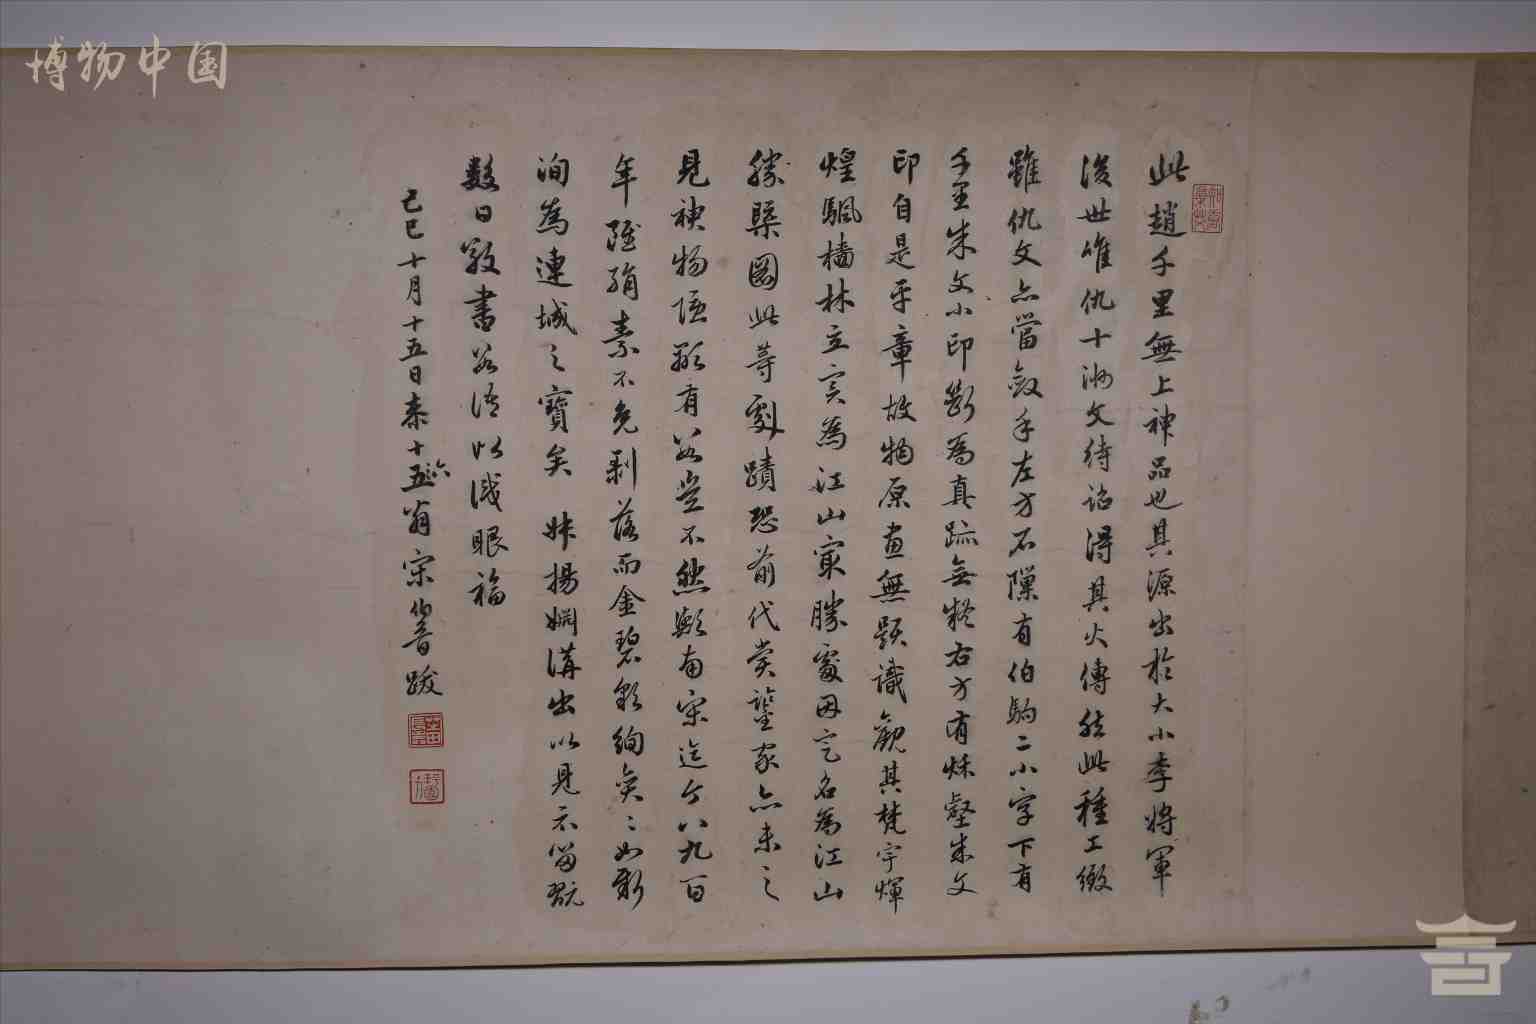 博物中国
此趙千里無上神品也其源出於大小李將軍
後世唯仇十洲文待詔得其火傳然此種工緻
雖仇文亦當斂手左方石隙有伯駒二小字下有
千里朱文小印斷為真跡無疑右方有秋壑朱文
印自是平章故物原畫無題識觀其梵宇輝
煌颿檣林立實為江山最勝處因定名為江山
勝槩圖此等劇蹟恐前代賞鑒家亦未之
見神物隱顯有數豈不然歟南宋迄今八九百
年雖絹素不免剝落而金碧彩絢奐奐如新
洵為連城之寶矣 妹揚嫻溝出以見示留翫
數日敬書數語以識眼福
己巳十月十五日泰十五六翁宋伯魯跋